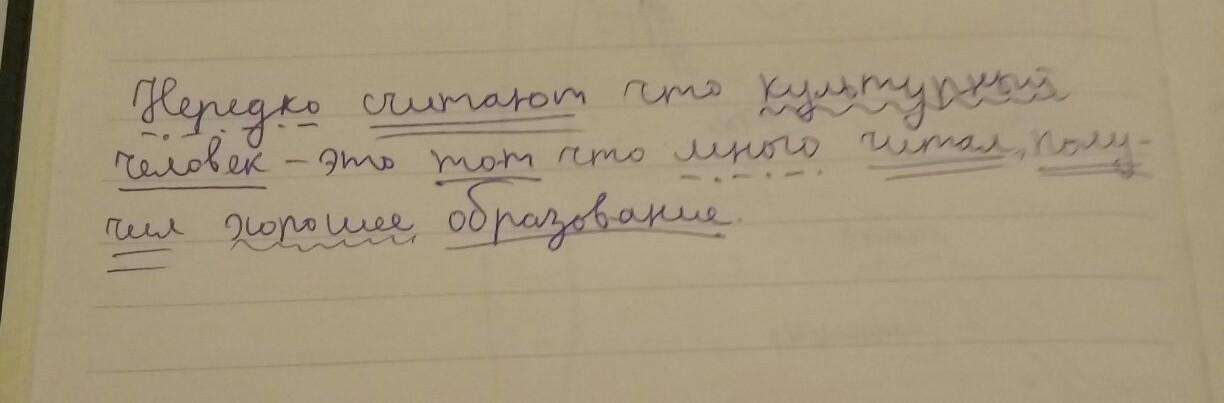 Нередко считают что культурный
человек – это тот что много читал, полу-
чил хорошее образование.